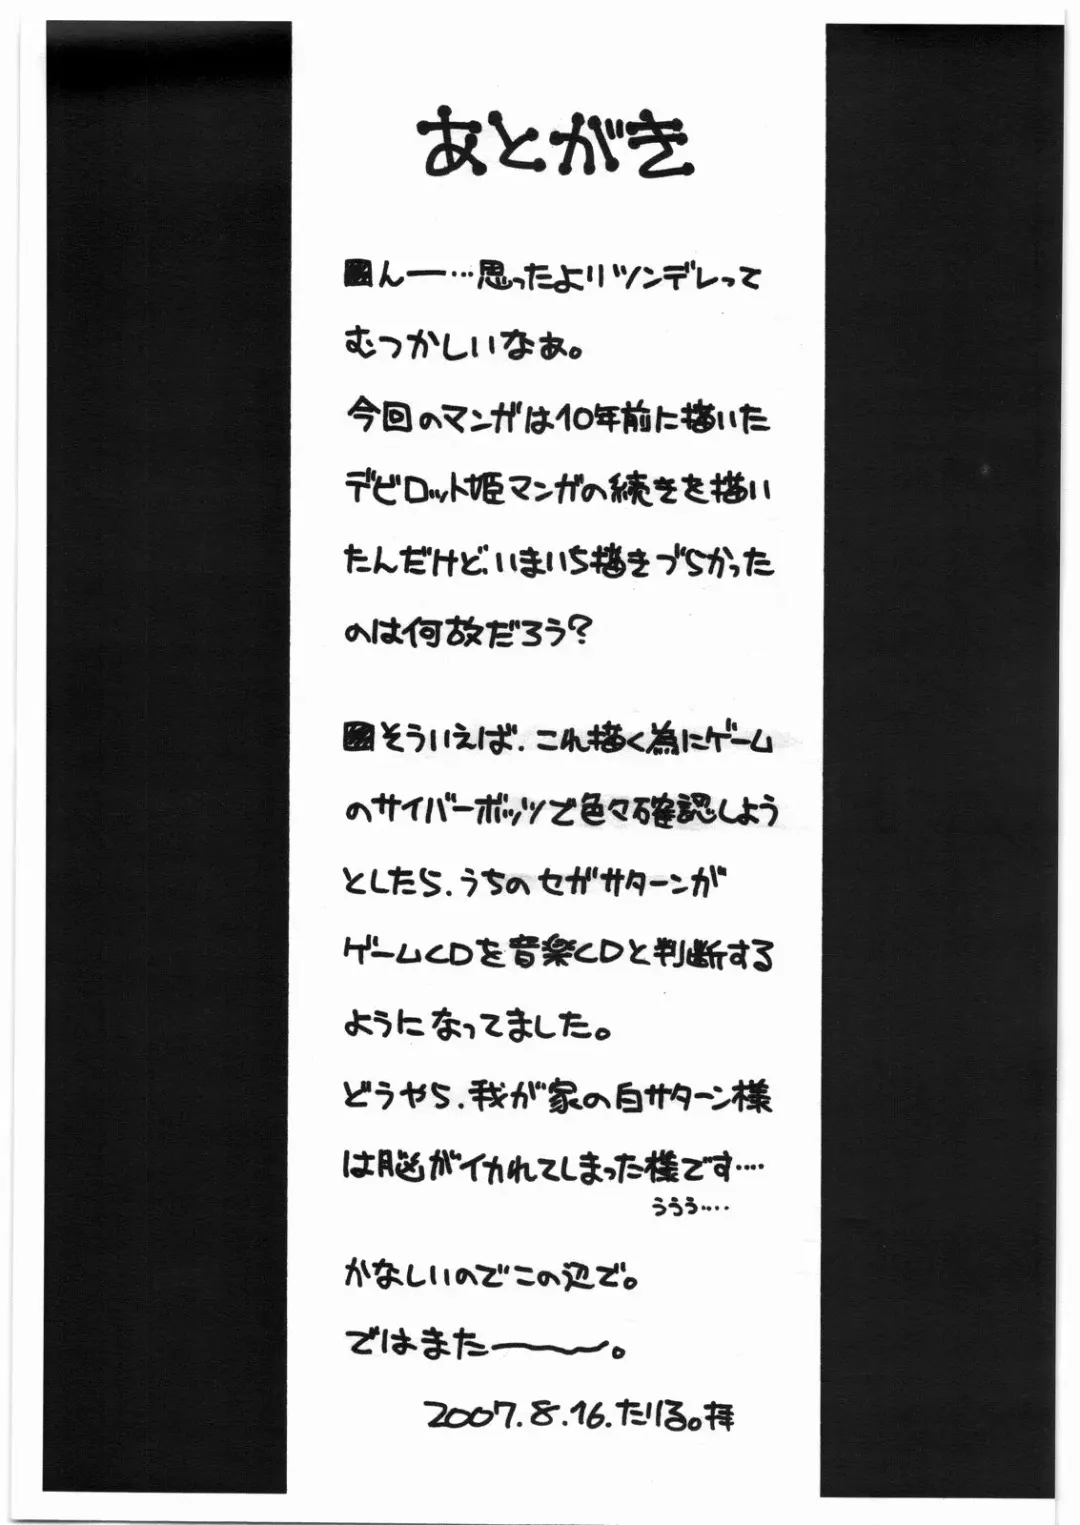 あとがき
■んー…思ったよりツンデレって
むつかしいなぁ。
今回のマンガは10年前に描いた
デビロット姫マンガの続きを描い
たんだけど、いまいち描きづらかった
のは何故だろう?
■そういえば、これ描く為にゲーム
のサイバーボッツで色々確認しよう
としたら、うちのセガサターンが
ゲームCDを音楽CDと判断する
ようになってました。
どうやら、我が家の白サターン様
は脳がイカれてしまった様です‥‥
ううう‥‥
かなしいのでこの辺で。
ではまたー〜。
2007.8.16.たりる。拝